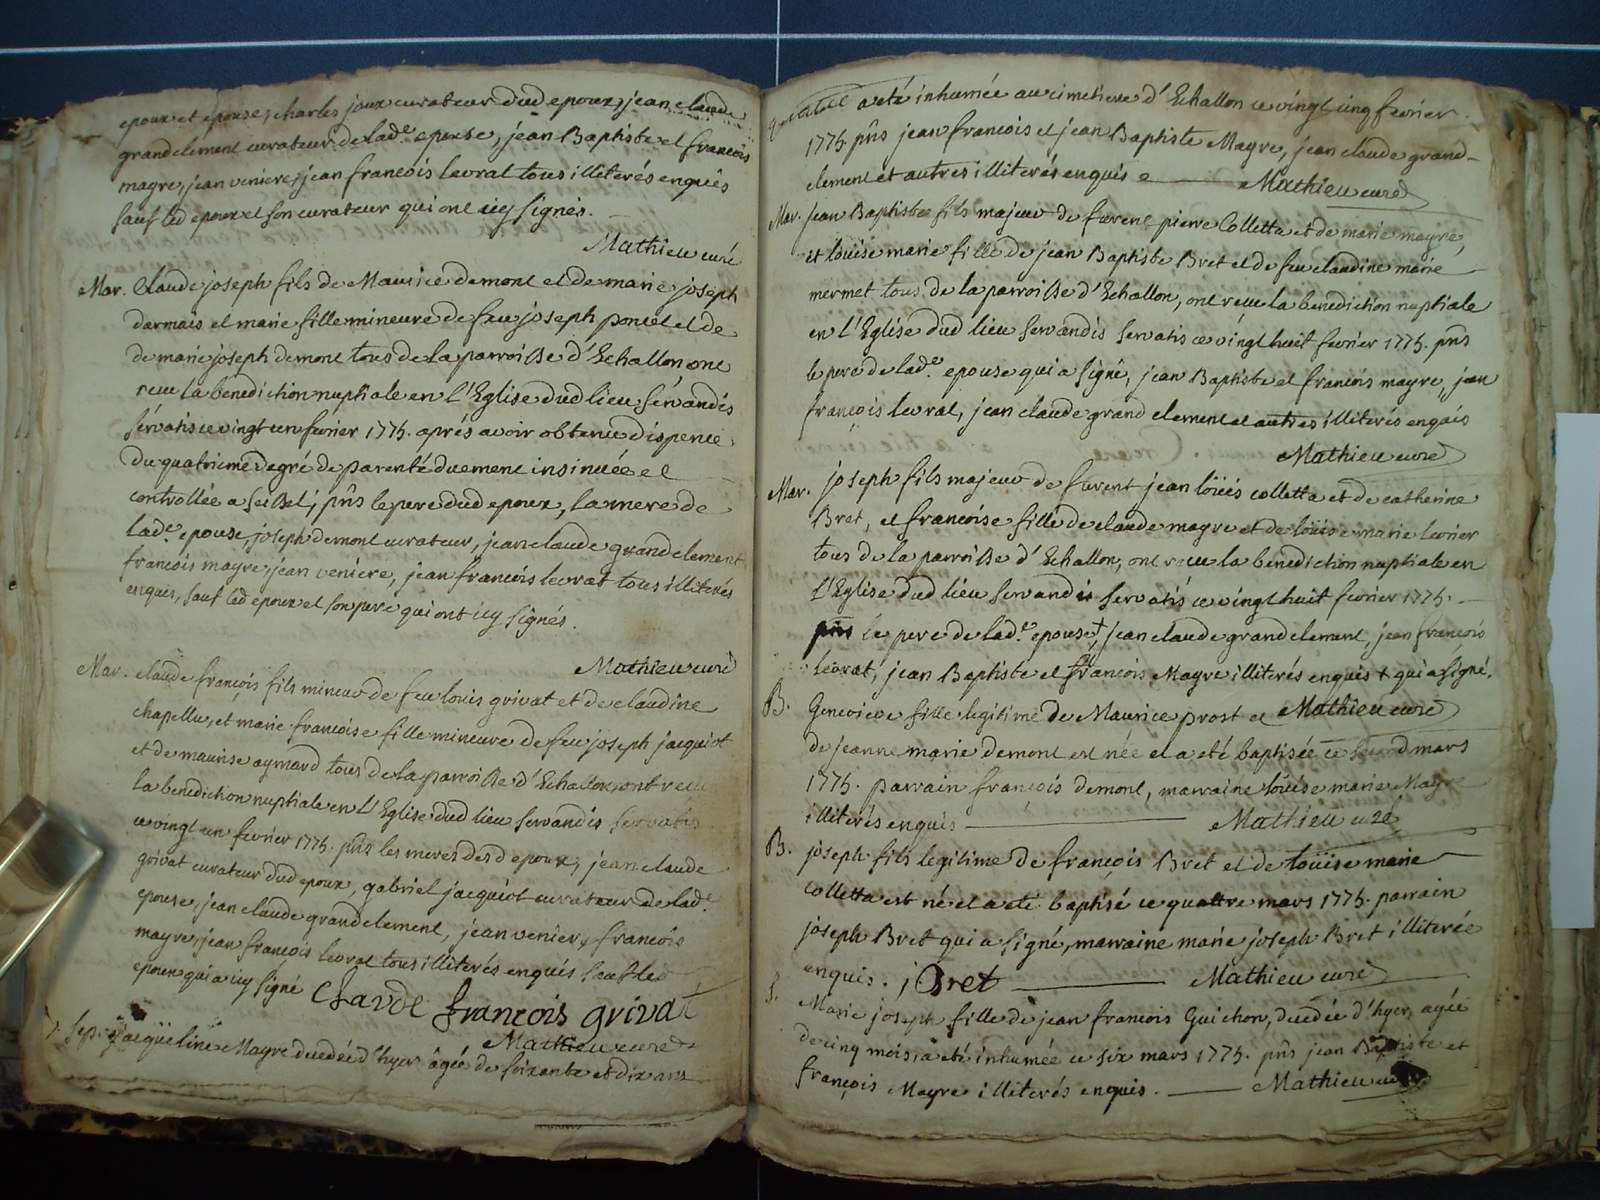 epoux et epouse, charles joux curateur dud epoux, jean claude
grandclement curateur de lade epouse, jean Baptiste et francois
mayre, jean veniere, jean francois levrat tous illiterés enquis
sauf led epoux et son curateur qui ont icy signés.
Mathieu curé
Mar. Claude joseph fils de Maurice demont et de marie joseph
darmais et marie fille mineure de feu joseph poncet et de
de marie joseph demont tous de la parroisse d'Echallon ont
receu la benediction nuptiale en L'Eglise dud lieu servandis
servatis ce vingt un fevrier 1775. aprés avoir obtenu dispense
du quatrieme degré de parenté duement insinuée et
controllée a ; pñs le pere dud epoux, la mere de
lade epouse, joseph demont curateur, jean claude grandclement
francois mayre, jean veniere, jean francois levrat tous illiterés
enquis, sauf led epoux et son pere qui ont icy signés.
Mathieu curé
Mar. claude françois fils mineur de feu louis grivat et de claudine
chapellu, et marie francoise fille mineure de feu joseph jacquiot
et de maurise aymard tous de la parroisse d'Echallon ont receu
la benediction nuptiale en L'Eglise dud lieu servandis servatis
ce vingt un fevrier 1775. pñs les meres desd epoux, jean claude
grivat curateur dud epoux, gabriel jacquiot curateur de lade
epouse, jean claude grandclement, jean veniere, francois
mayre, jean françois levrat tous illiterés enquis sauf led
epoux qui a icy signé Claude françois grivat
Mathieu curé
Sep. jacqueline Mayre decedée d'hyer âgée de soixante et dix ans
a eté inhumée au cimetiere d'Echallon ce vingt cinq fevrier
1775. pñs jean francois et jean Baptiste Mayre, jean claude grand-
clement et autres illiterés enquis Mathieu curé
Mar. jean Baptiste fils majeur de furent pierre Colletta et de marie mayre,
et loüise marie fille de jean Baptiste Bret et de feu claudine marie
mermet tous de la parroisse d'Echallon, ont receu la benediction nuptiale
en L'Eglise dud lieu servandis servatis ce vingt huit fevrier 1775. pñs
le pere de lade epouse qui a signé, jean Baptiste et francois mayre, jean
françois levrat, jean claude grand clement et autres illiterés enquis
Mathieu curé
Mar. joseph fils majeur de furent jean loüis colletta et de catherine
Bret, et francoise fille de claude mayre et de loüise marie levrier
tous de la parroisse d'Echallon, ont receu la benediction nuptiale en
L'Eglise dud lieu servandis servatis ce vingt huit fevrier 1775.
pñs le pere de lade epouse +, jean claude grandclement, jean françois
levrat, jean Baptiste et françois Mayre illiterés enquis + qui a signé.
B. Genevieve fille legitime de Maurice prost et Mathieu curé
de jeanne marie demont est née et a eté baptisée ce second mars
1775. parrain françois demont, marraine loüise marie Mayre
illiterés enquis Mathieu curé
B. joseph fils legitime de françois Bret et de loüise marie
colletta est né et a eté baptisé ce quattre mars 1775. parrain
joseph Bret qui a signé, marraine marie joseph Bret illiterée
enquis. j Bret Mathieu curé
S. Marie joseph fille de jean francois Guichon, decedée d'hyer, agée
de cinq mois, a eté inhumée ce six mars 1775. pñs jean Baptiste et
françois Mayre illiterés enquis. Mathieu curé